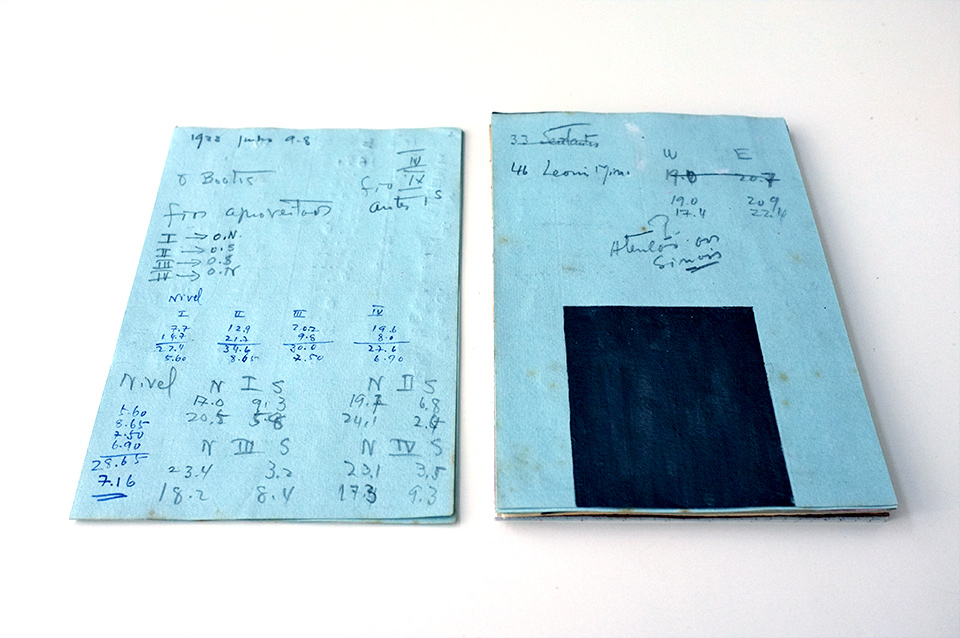 1922 Junho 9.8
γ Bootis
IV
Fio IX
antes 1 s
fios aproveitados
I → O.N
II → O.S
III → O.S
IV → O.N
Nivel
I II III IV
7.7 12.9 20.2 19.6
14.7 21.7 9.8 8.0
22.4 34.6 30.0 27.6
5.60 8.65 7.50 6.90
Nivel N I S N II S
17.0 9.3 19.7 6.8
20.5 5.8 24.1 2.4
5.60
8.65
7.50
6.90
28.65
7.16
N III S N IV S
23.4 3.2 23.1 3.5
18.2 8.4 17.3 9.3
33 Sextantis
46 Leonis Min. W E
19.0 20.7
19.0 20.9
17.4 22.4
?
Atenção aos
Sinais